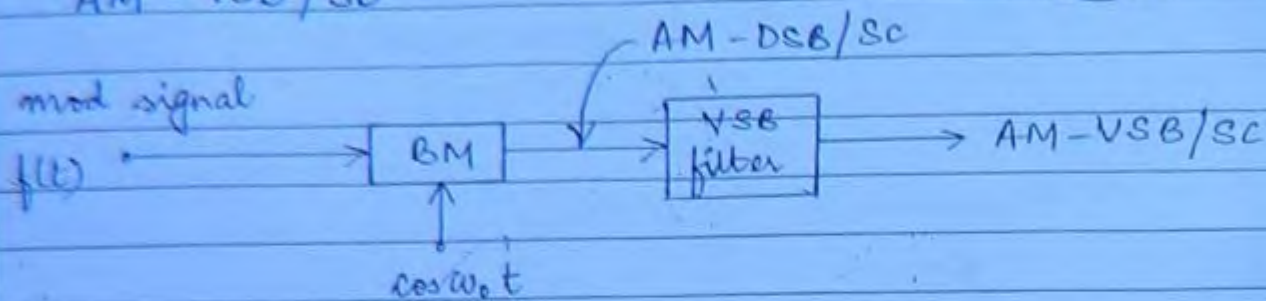 AM - VSB/SC
AM - DSB/SC
mod signal
f(t)
BM
VSB
filter
AM - VSB/SC
cos ω₀ t